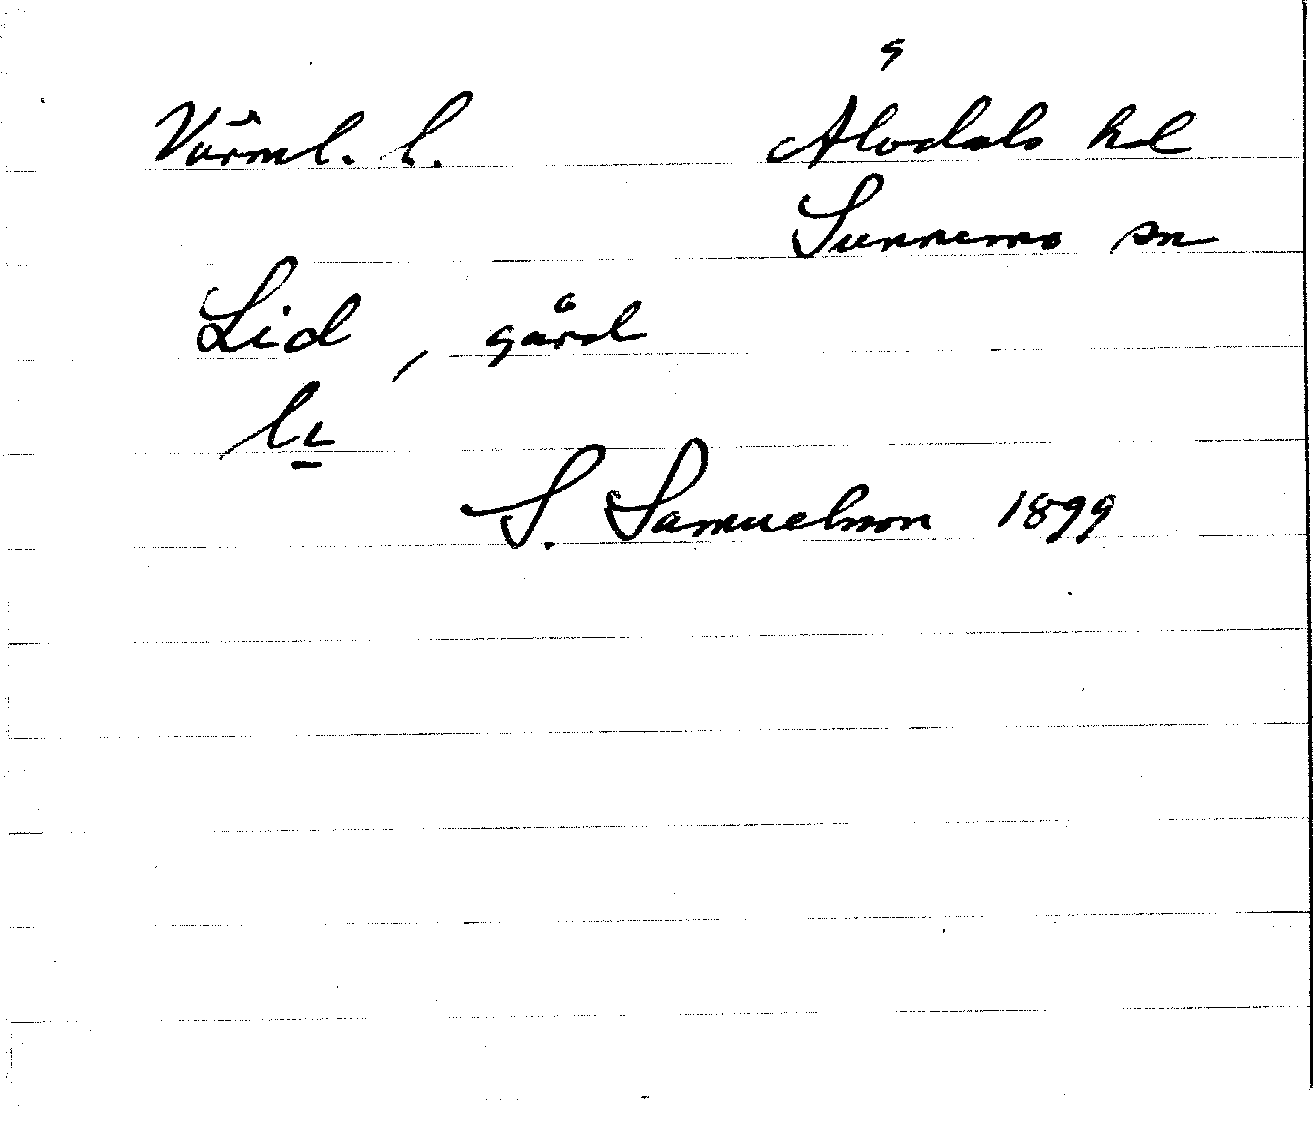 Värml. l. Älvdals hd
Sunnemo sn
Lid, gård
S. Samuelsson 1899